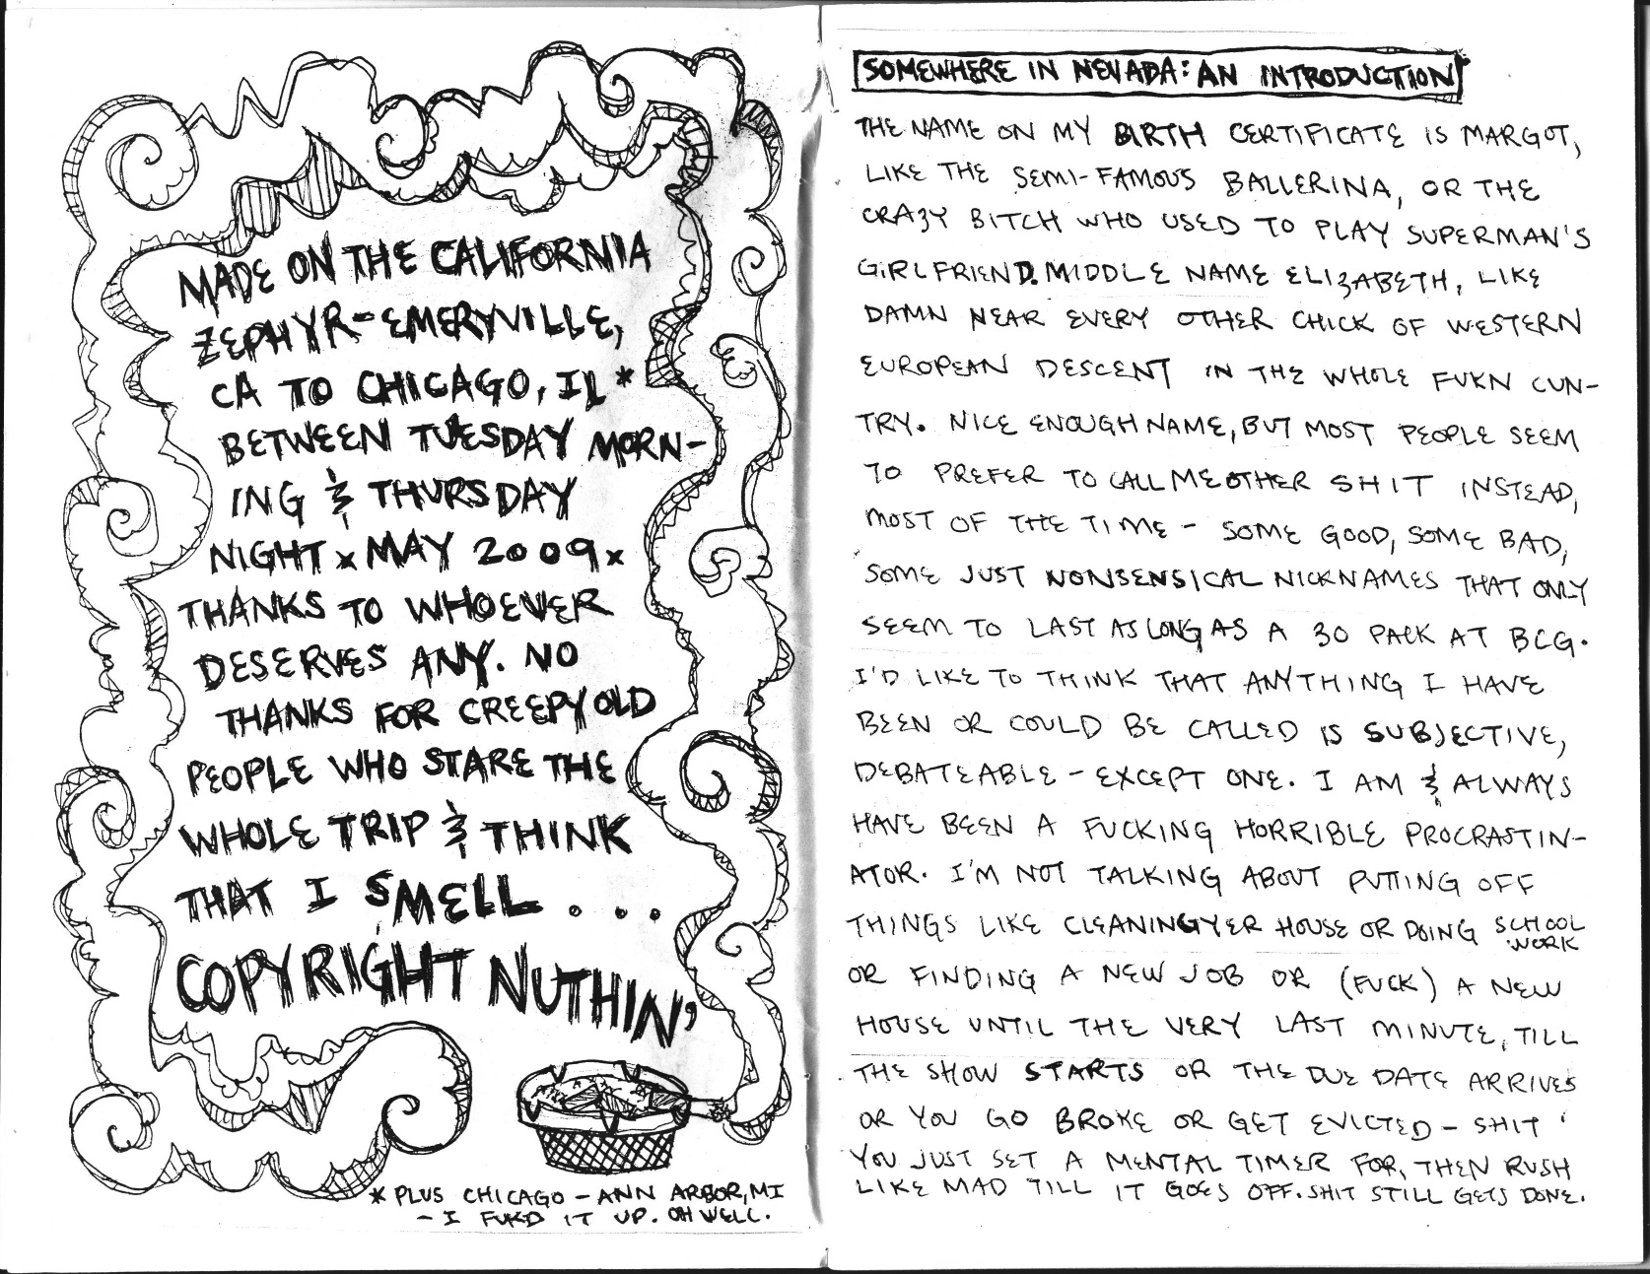 MADE ON THE CALIFORNIA
ZEPHYR-EMERYVILLE,
CA TO CHICAGO, IL*
BETWEEN TUESDAY MORN-
ING & THURSDAY
NIGHT x MAY 2009 x
THANKS TO WHOEVER
DESERVES ANY. NO
THANKS FOR CREEPY OLD
PEOPLE WHO STARE THE
WHOLE TRIP & THINK
THAT I SMELL....
COPYRIGHT NUTHIN'
* PLUS CHICAGO - ANN ARBOR, MI
- I FUKD IT UP. OH WELL.
SOMEWHERE IN NEVADA: AN INTRODUCTION
THE NAME ON MY BIRTH CERTIFICATE IS MARGOT,
LIKE THE SEMI-FAMOUS BALLERINA, OR THE
CRAZY BITCH WHO USED TO PLAY SUPERMAN'S
GIRLFRIEND. MIDDLE NAME ELIZABETH, LIKE
DAMN NEAR EVERY OTHER CHICK OF WESTERN
EUROPEAN DESCENT IN THE WHOLE FUKN CUN-
TRY. NICE ENOUGH NAME, BUT MOST PEOPLE SEEM
TO PREFER TO CALL ME OTHER SHIT INSTEAD,
MOST OF THE TIME - SOME GOOD, SOME BAD,
SOME JUST NONSENSICAL NICKNAMES THAT ONLY
SEEM TO LAST AS LONG AS A 30 PACK AT BCG.
I'D LIKE TO THINK THAT ANYTHING I HAVE
BEEN OR COULD BE CALLED IS SUBJECTIVE,
DEBATEABLE - EXCEPT ONE. I AM & ALWAYS
HAVE BEEN A FUCKING HORRIBLE PROCRASTIN-
ATOR. I'M NOT TALKING ABOUT PUTTING OFF
THINGS LIKE CLEANING YER HOUSE OR DOING SCHOOL WORK
OR FINDING A NEW JOB OR (FUCK) A NEW
HOUSE UNTIL THE VERY LAST MINUTE, TILL
THE SHOW STARTS OR THE DUE DATE ARRIVES
OR YOU GO BROKE OR GET EVICTED - SHIT
YOU JUST SET A MENTAL TIMER FOR, THEN RUSH
LIKE MAD TILL IT GOES OFF. SHIT STILL GETS DONE.